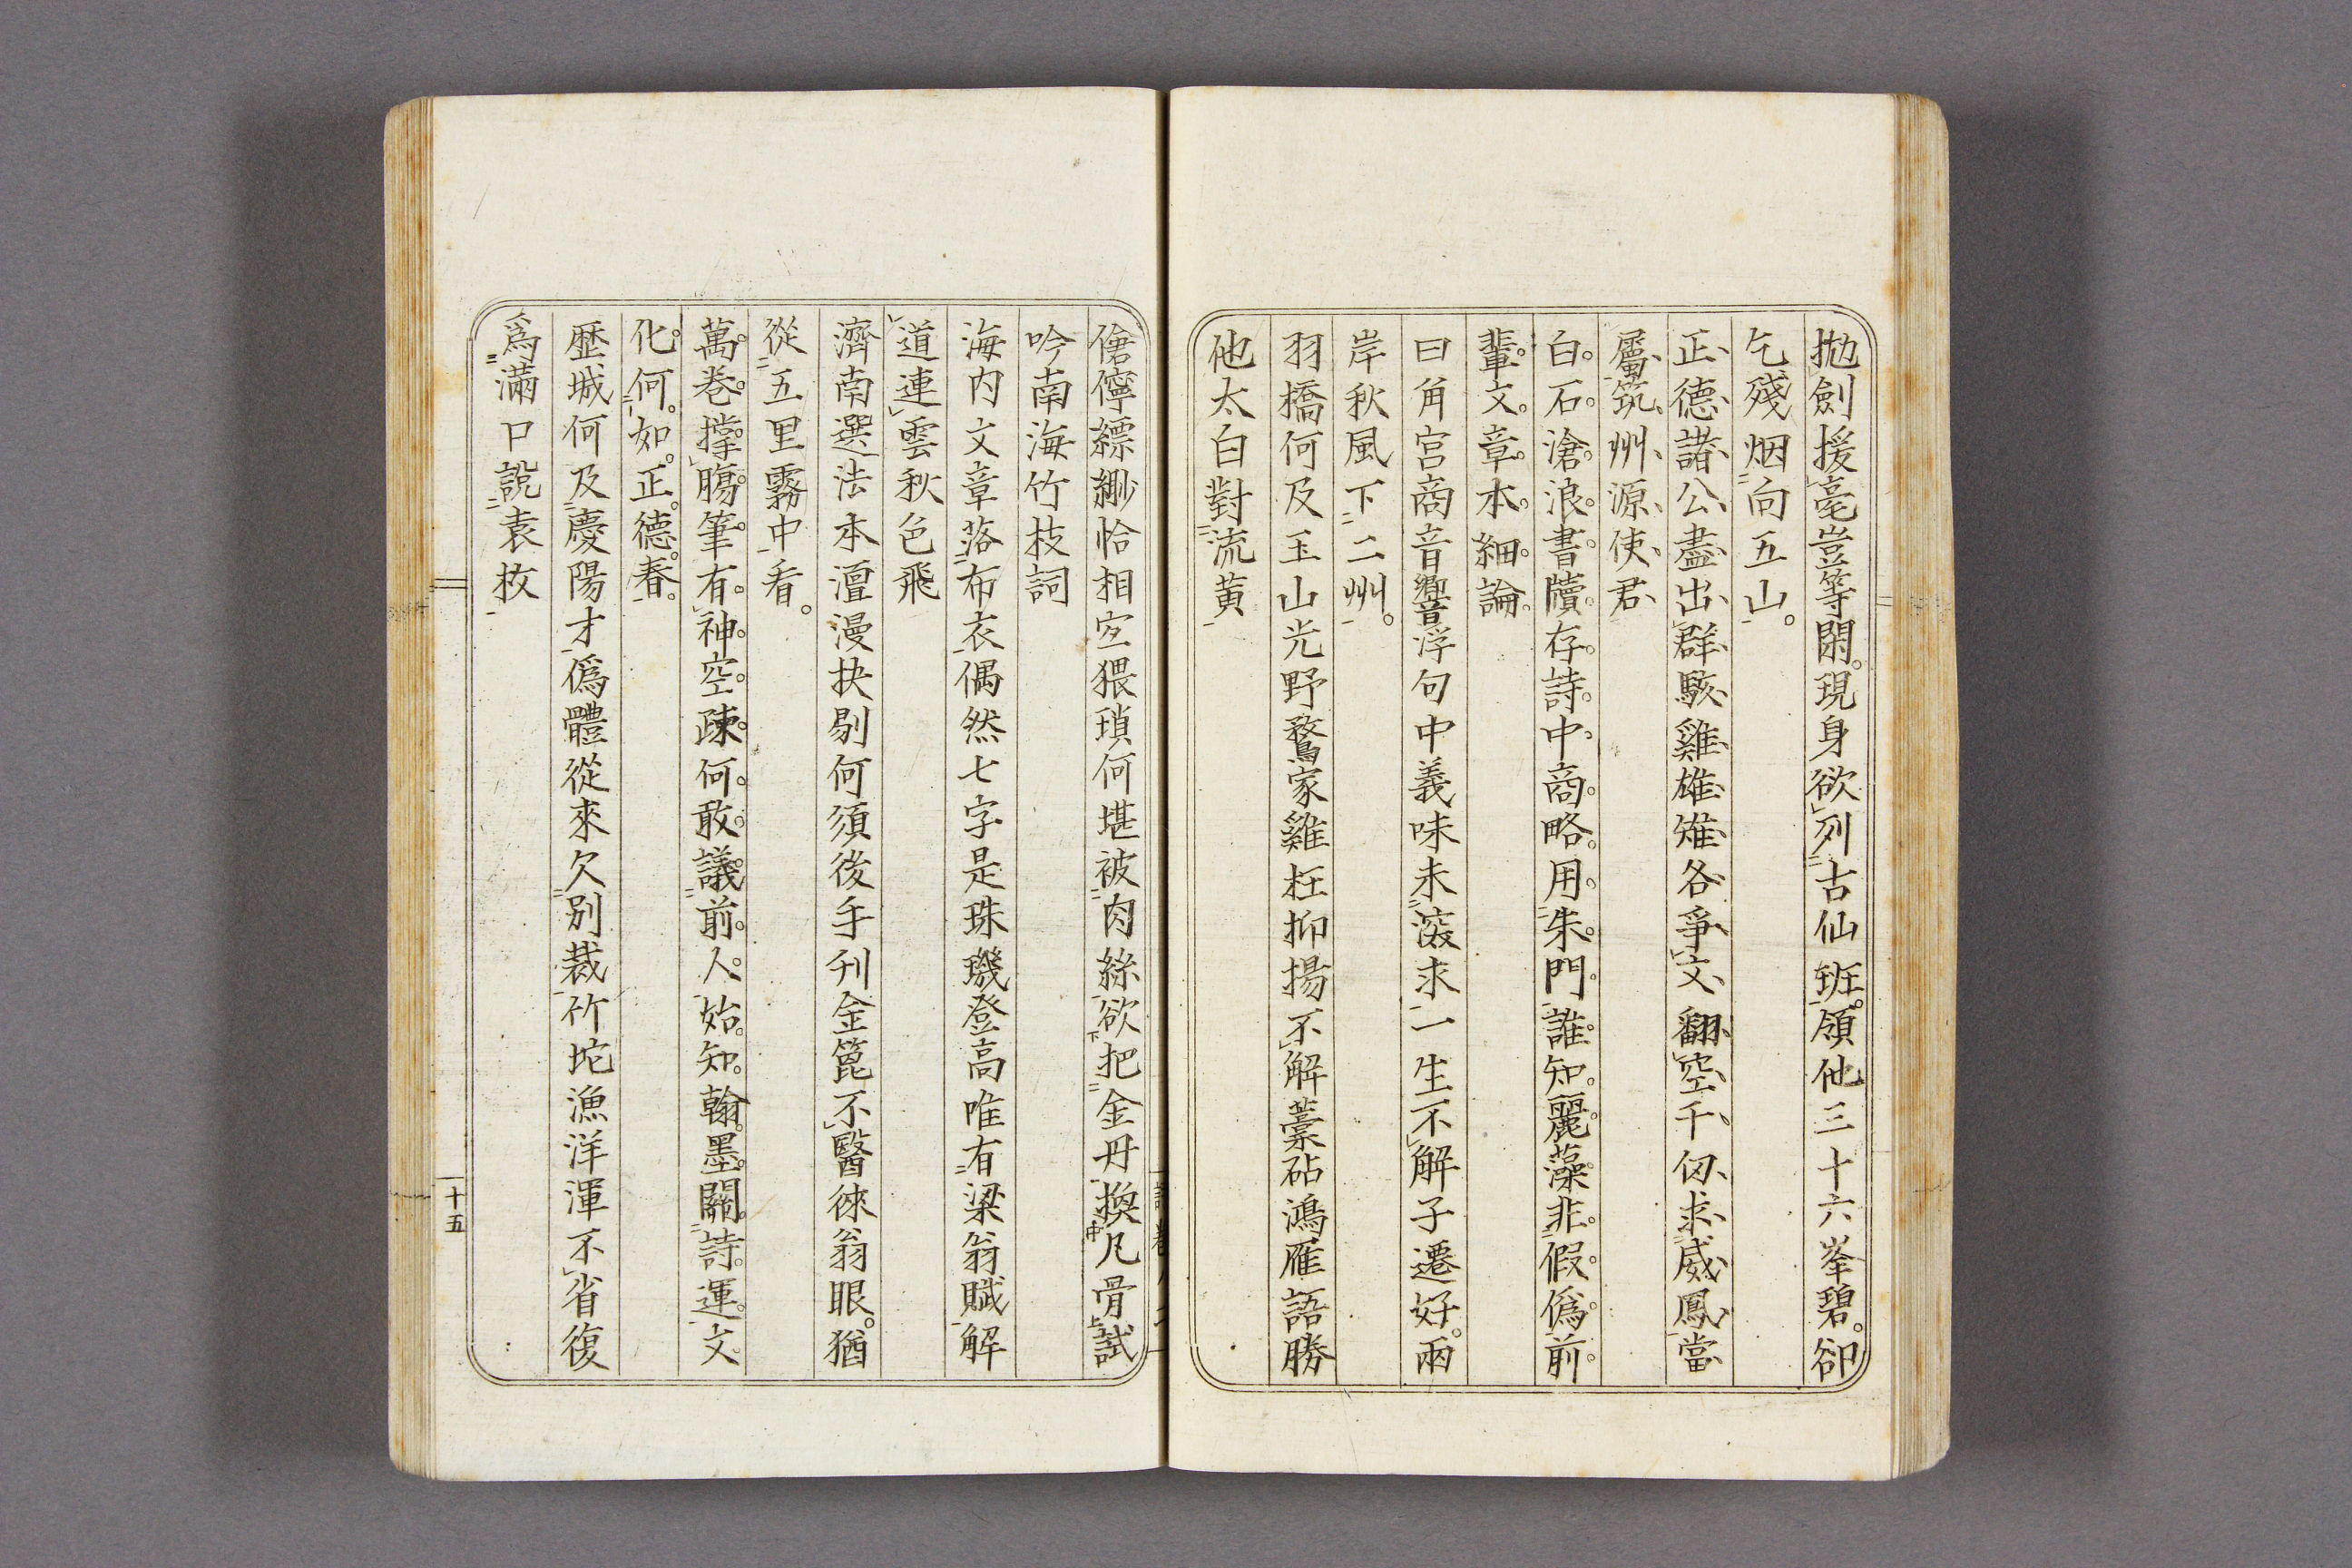 拋劍援毫豈等閑現身欲列古仙班領他三十六峯碧卻
乞殘烟向五山
正德諸公盡出群駭雞雄雉各爭文翻空千仭求威鳳當
屬筑州源使君
白石滄浪書牘存詩中商略用朱門誰知麗藻非假僞前
輩文章本細論
曰角宮商音響浮句中義味未深求一生不解子遷好兩
岸秋風下二州
羽橋何及玉山光野鶩家雞枉抑揚不解藁砧鴻雁語勝
他太白對流黃
傖儜縹緲恰相宜猥瑣何堪被肉絲欲把金丹換凡骨試
吟南海竹枝詞
海內文章落布衣偶然七字是珠璣登高唯有梁翁賦解
道連雲秋色飛
濟南選法本澶漫抉剔何須後手刊金箆不醫徠翁眼猶
從五里霧中看
萬卷撐腸筆有神空疎何敢議前人始知翰墨關詩運文
化何如正德春
歷城何及慶陽才僞體從來欠別裁竹坨漁洋渾不省復
爲滿口說袁枚
十五